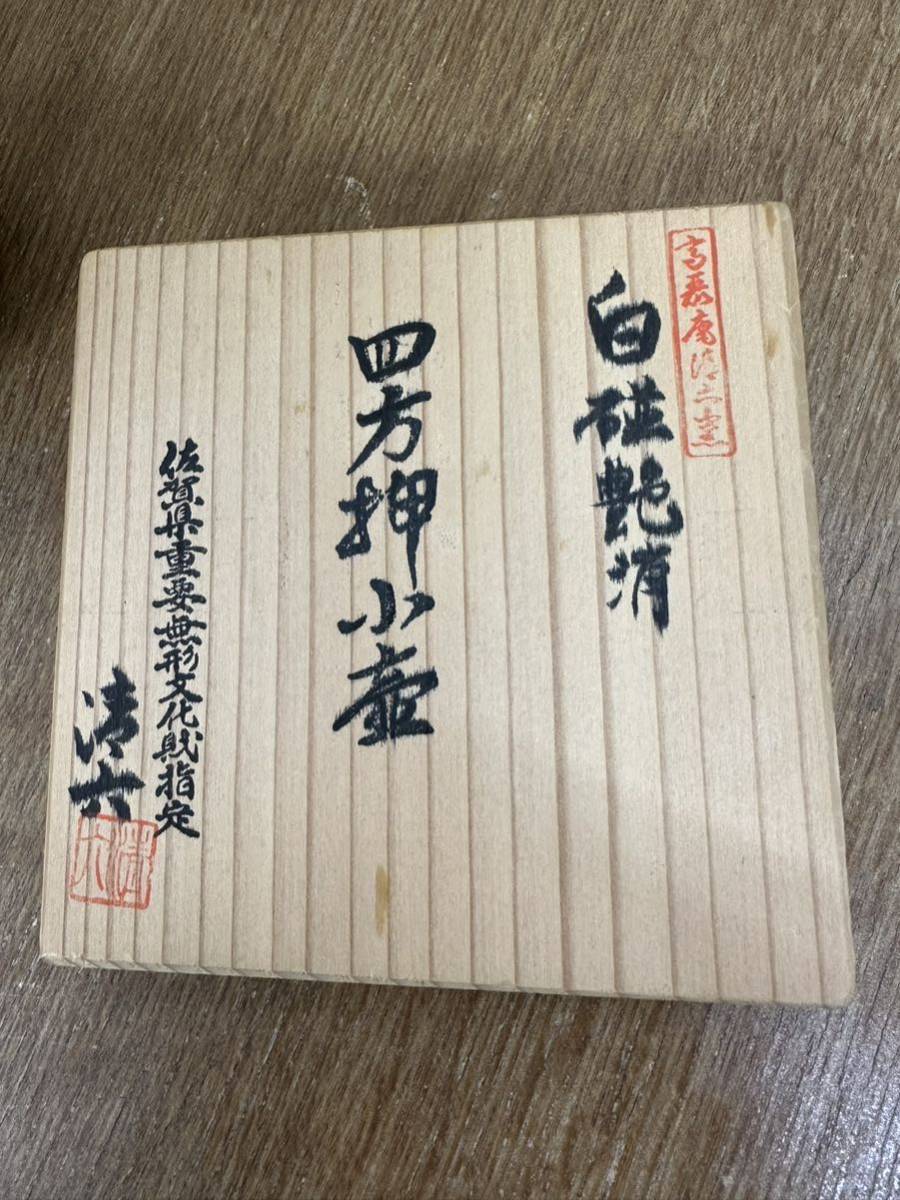 高麗庵清六窯
白磁艶消
四方押小壷
佐賀県重要無形文化財指定
清六
清六